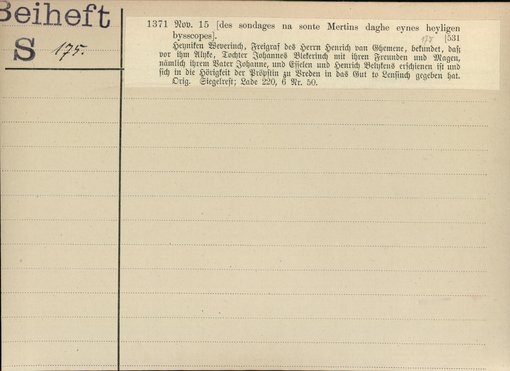 Beiheft
S 175.
1371 Nov. 15 [des sondages na sonte Mertins daghe eynes heyligen
bysscopes]. 175 [531
Heyniken Weverinch, Freigraf des Herrn Henrich van Ghemene, bekundet, daß
vor ihm Alyke, Tochter Johannes Biekerinch mit ihren Freunden und Magen,
nämlich ihrem Vater Johanne, und Esselen und Henrich Belykens erschienen ist und
sich in die Hörigkeit der Pröpstin zu Vreden in das Gut to Lensinch gegeben hat.
Orig. Siegelrest; Lade 220, 6 Nr. 50.